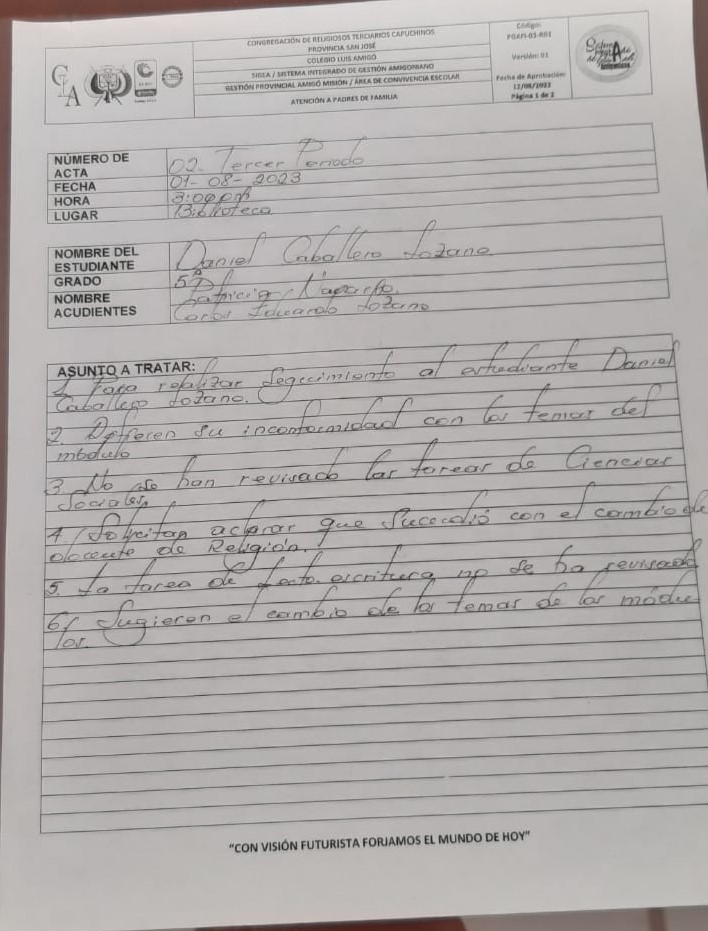 CONGREGACIÓN DE RELIGIOSOS TERCIARIOS CAPUCHINOS
PROVINCIA SAN JOSÉ
COLEGIO LUIS AMIGÓ
SIGEA / SISTEMA INTEGRADO DE GESTIÓN AMIGONIANO
GESTIÓN PROVINCIAL AMIGÓ MISIÓN / ÁREA DE CONVIVENCIA ESCOLAR
ATENCIÓN A PADRES DE FAMILIA
Código:
PGAFI-03-R01
Versión: 01
Fecha de Aprobación:
12/08/2022
Página 1 de 2
CLA
NÚMERO DE ACTA 02. Tercer Periodo
FECHA 01-08-2023
HORA 3:00 pm
LUGAR Biblioteca
NOMBRE DEL ESTUDIANTE Daniel Caballero Lozano
GRADO 5º
NOMBRE ACUDIENTES Patricia
Carlos Eduardo Lozano
ASUNTO A TRATAR:
1. Para realizar seguimiento al estudiante Daniel
Caballero Lozano.
2. su inconformidad con los temas del
módulo
3. No se han revisado las tareas de Ciencias
Sociales,
4. Solicitan aclarar que sucedió con el cambio de
docente de Religión.
5. La tarea de lecto-escritura no se ha revisado
6. Sugieren el cambio de los temas de los módu
los.
"CON VISIÓN FUTURISTA FORJAMOS EL MUNDO DE HOY"